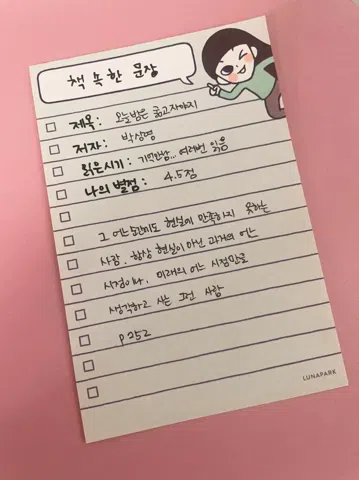 책 속 한 문장
제목: 오늘밤은 굶고 자야지
저자: 박상영
읽은시기: 기억안남... 여러번 읽음
나의 별점: 4.5점
그 어느순간에도 현실에 만족하지 못하는
사람. 항상 현실이 아닌 과거의 어느
시점이나, 미래의 어느 시점만을
생각하고 사는 그런 사람
p252
LUNAPARK